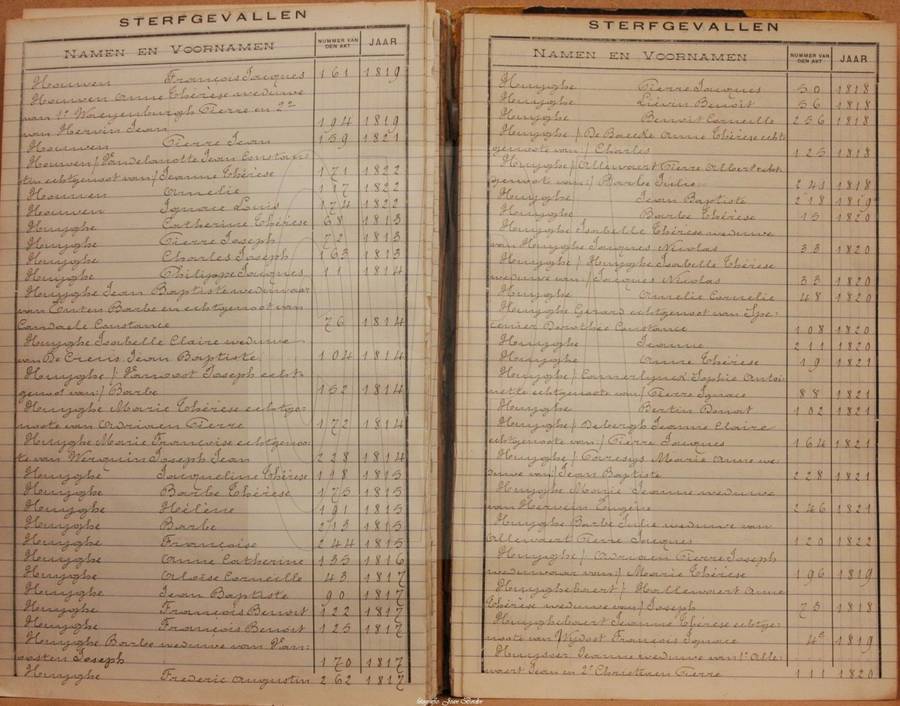 STERFGEVALLEN
NAMEN EN VOORNAMEN NUMMER VAN DEN AKT JAAR
Houwen François Jacques 161 1819
Houwen Anne Thérèse weduwe
van 1° Waeyenburgh Pierre en 2°
van Hervin Jean 194 1819
Houwen Pierre Jean 159 1821
Houwen / Vandelanotte Jean Constan
tin echtgenoot van / Jeanne Thérèse 171 1822
Houwen Amelie 117 1822
Houwen Ignace Louis 174 1822
Huyghe Catherine Thérèse 68 1813
Huyghe Pierre Joseph 72 1813
Huyghe Charles Joseph 163 1813
Huyghe Philippe Jacques 11 1814
Huyghe Jean Baptiste weduwaar
van Conten Barbe en echtgenoot van
Candaele Constance 76 1814
Huyghe Isabelle Claire weduwe
van De Creris Jean Baptiste 104 1814
Huyghe / Joseph echt-
genoot van / Barbe 152 1814
Huyghe Marie Thérèse echtge-
noote van Adriaen Pierre 172 1814
Huyghe Marie Françoise echtgenoo-
te van Werquin Joseph Jean 228 1814
Huyghe Jacqueline Thérèse 198 1815
Huyghe Barbe Thérèse 175 1815
Huyghe Hélène 191 1815
Huyghe Barbe 213 1815
Huyghe Françoise 244 1815
Huyghe Anne Catherine 135 1816
Huyghe Aloïse Corneille 43 1817
Huyghe Jean Baptiste 90 1817
Huyghe François Benoit 122 1817
Huyghe François Benoit 125 1817
Huyghe Barbe weduwe van Van-
oosten Joseph 170 1817
Huyghe Frederic Augustin 262 1817
STERFGEVALLEN
NAMEN EN VOORNAMEN NUMMER VAN DEN AKT JAAR
Huyghe Pierre Jacques 50 1818
Huyghe Liévin Benoit 56 1818
Huyghe Benoit Corneille 256 1818
Huyghe / De Baecke Anne Thérèse echt-
genoote van / Charles 125 1818
Huyghe / Allewaert Pierre Albert echt-
genoote van / Barbe Julie 241 1818
Huyghe Jean Baptiste 218 1819
Huyghe Barbe Thérèse 15 1820
Huyghe Isabelle Thérèse weduwe
van Huyghe Jacques Nicolas 33 1820
Huyghe / Huyghe Isabelle Thérèse
weduwe van / Jacques Nicolas 33 1820
Huyghe Amelie Cornelie 48 1820
Huyghe Gérard echtgenoot van Spe-
cenier Dorothée Constance 108 1820
Huyghe Jeanne 211 1820
Huyghe Anne Thérèse 19 1821
Huyghe / Camerlynck Sophie Antoi-
nette echtgenoote van / Pierre Ignace 88 1821
Huyghe Bertin Benoit 102 1821
Huyghe / Debergh Jeanne Claire
echtgenoote van / Pierre Jacques 164 1821
Huyghe / Corresys Marie Anne we-
duwe van / Jean Baptiste 228 1821
Huyghe Marie Jeanne weduwe
van Herwein Eugène 246 1821
Huyghe Barbe Julie weduwe van
Allewaert Pierre Jacques 120 1822
Huyghe / Adriaen Pierre Joseph
weduwaar van / Marie Thérèse 196 1819
Huyghebaert / Hallewaert Anne
Thérèse weduwe van / Joseph 75 1818
Huyghebaert Jeanne Thérèse echtge-
noote van François Ignace 45 1819
Huysser Jeanne weduwe van 1° Alle-
waert Jean en 2° Christiaen Pierre 111 1820